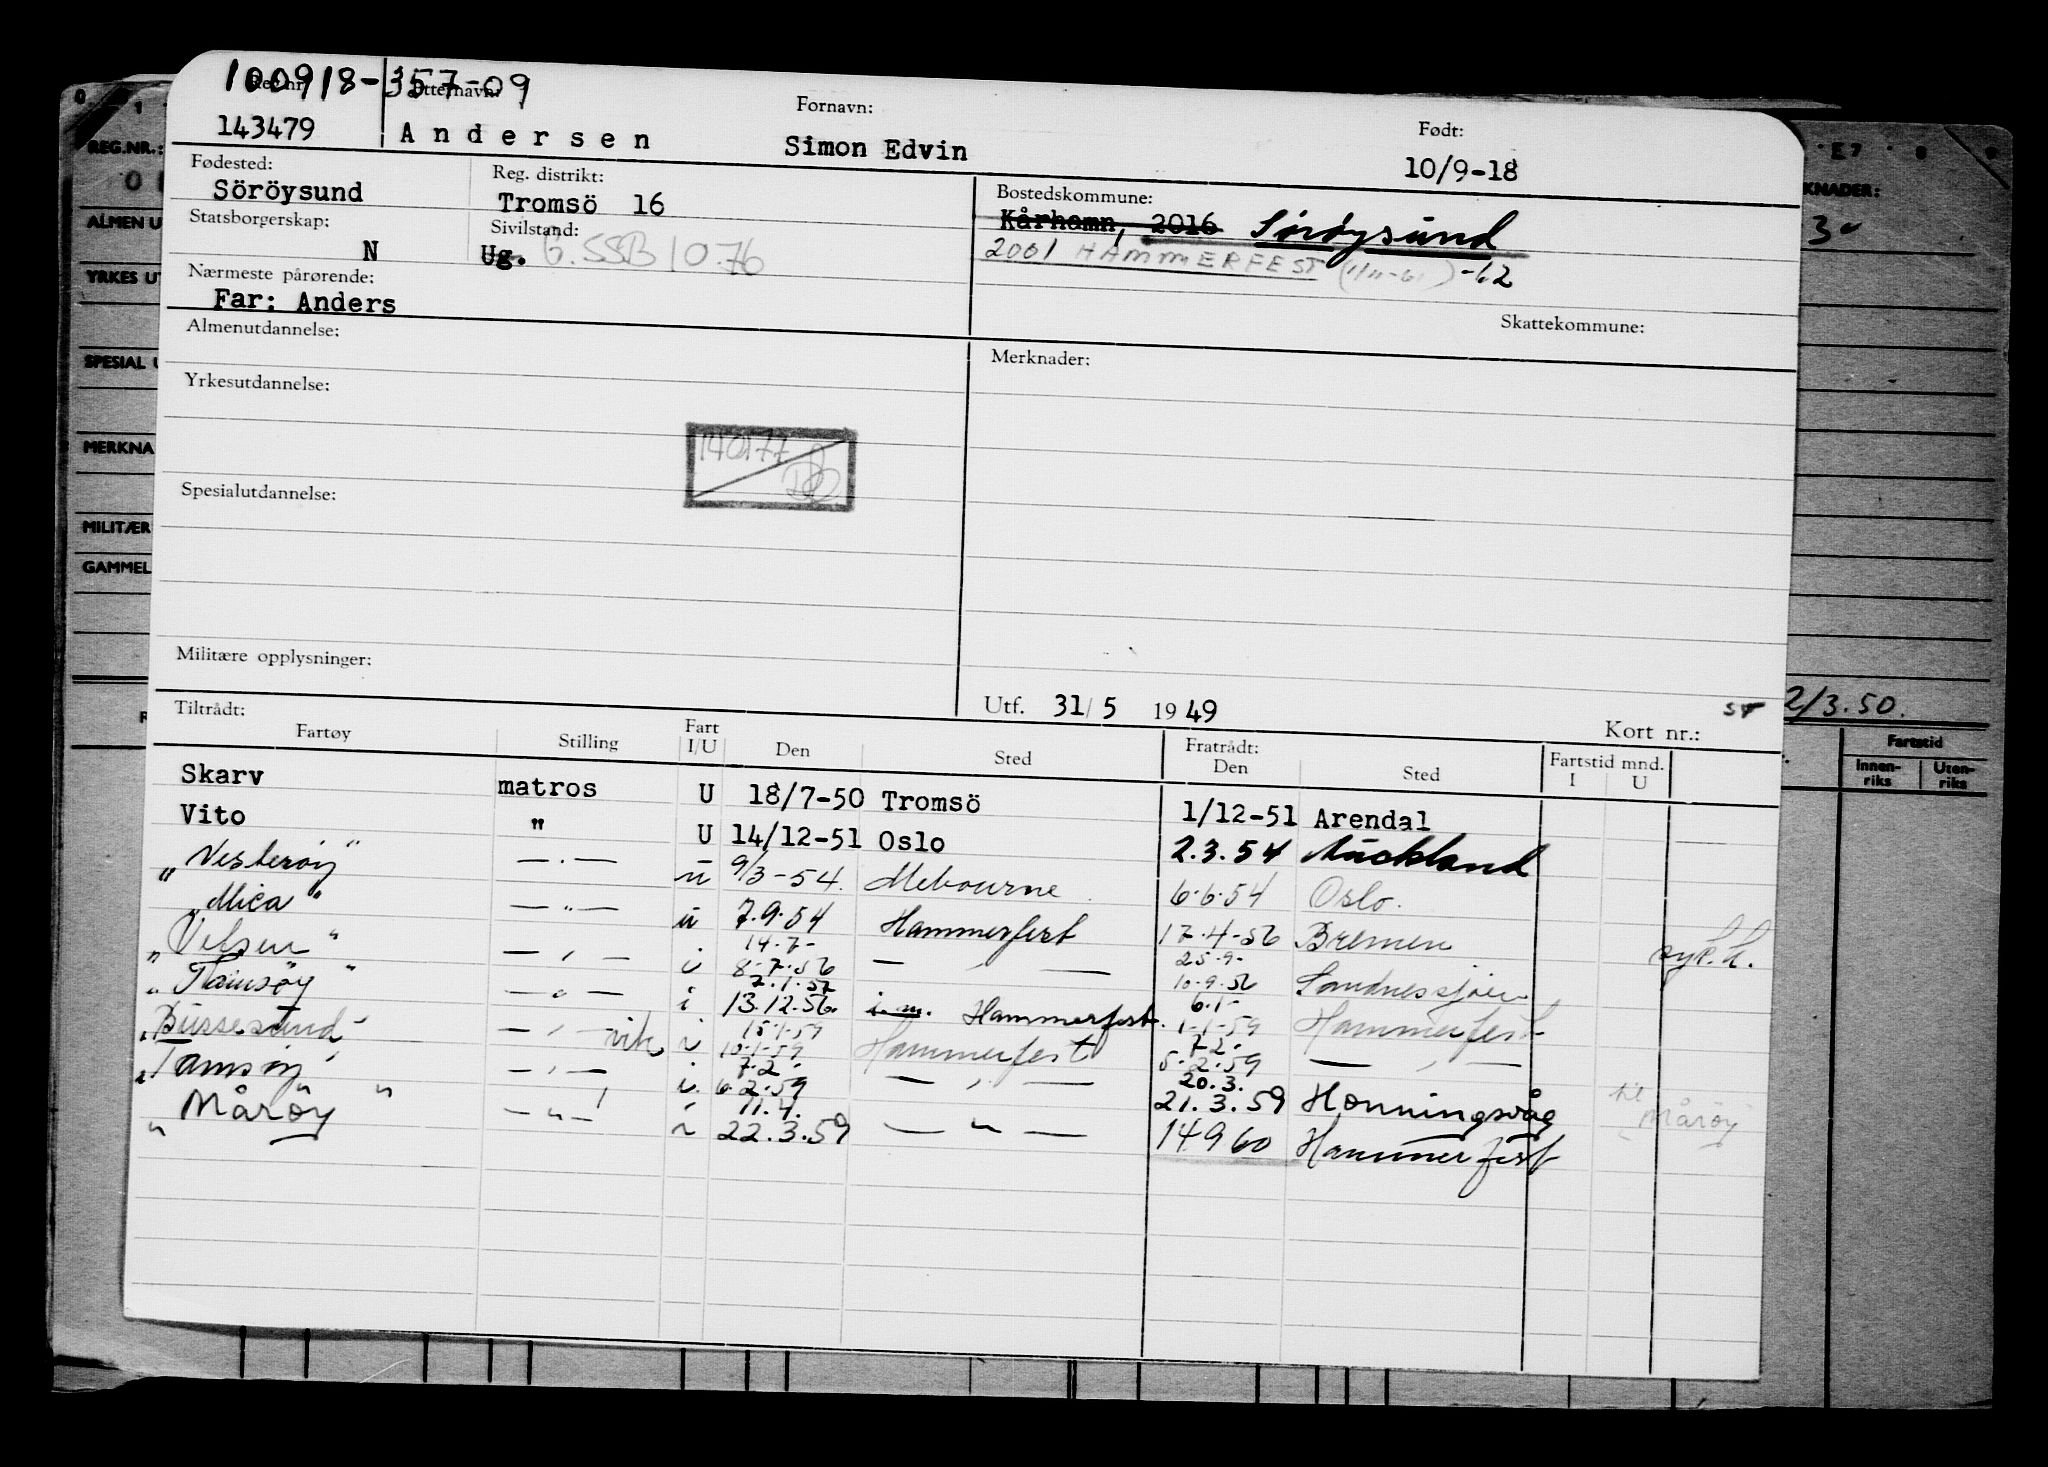 100918-357-09
Reg.nr. Etternavn: Fornavn: Født:
143479 Andersen Simon Edvin 10/9-18
Fødested: Reg. distrikt: Bostedskommune:
Söröysund Tromsö 16 Kårhamn, 2016 Sørøysund
Statsborgerskap: Sivilstand:
N Ug. G.SSB 10.76 2001 HAMMERFEST -62
Nærmeste pårørende:
Far: Anders
Skattekommune:
Almenutdannelse: Merknader:
Yrkesutdannelse:
140177
Spesialutdannelse:
Militære opplysninger:
Utf. 31/5 1949
Kort nr.:
Tiltrådt: Fratrådt:
Fartøy Stilling Fart I/U Den Sted Den Sted Fartstid mnd. I U
Skarv matros U 18/7-50 Tromsö 1/12-51 Arendal
Vito " U 14/12-51 Oslo 2.3.54 Auckland
"Vesterøy" — . — u 9/3-54. Mebourne 6.6.54 Oslo.
"Mica" — " — u 7.9.54 Hammerfest 17.4-56 Bremen
14.7- 25.9-
— , — 8-7.56 — , — 10.9.56 Sandnessjøen
7.1.57 6.1-
"Tamsøy" — " — i 13.12.56. i.m. Hammerfest. 1-1-59 Hammerfest
15.1.59 7.2.
"Bussesund" — , — vik i 10-1-59 Hammerfest 5.2.59 — , —
7.2. 20.3.
"Tamsøy" — , — i. 6.2.59 — , — 21.3.59 Honningsvåg til Mårøy
11.4.
"Mårøy" — " — i 22.3.59 — " — 14 9 60 Hammerfest
REG.NR.:
ALMEN U
YRKES UT
SPESIAL U
MERKNA
MILITÆR
GAMMEL
KNADER:
2/3.50.
Fartstid
Innen-riks Uten-riks